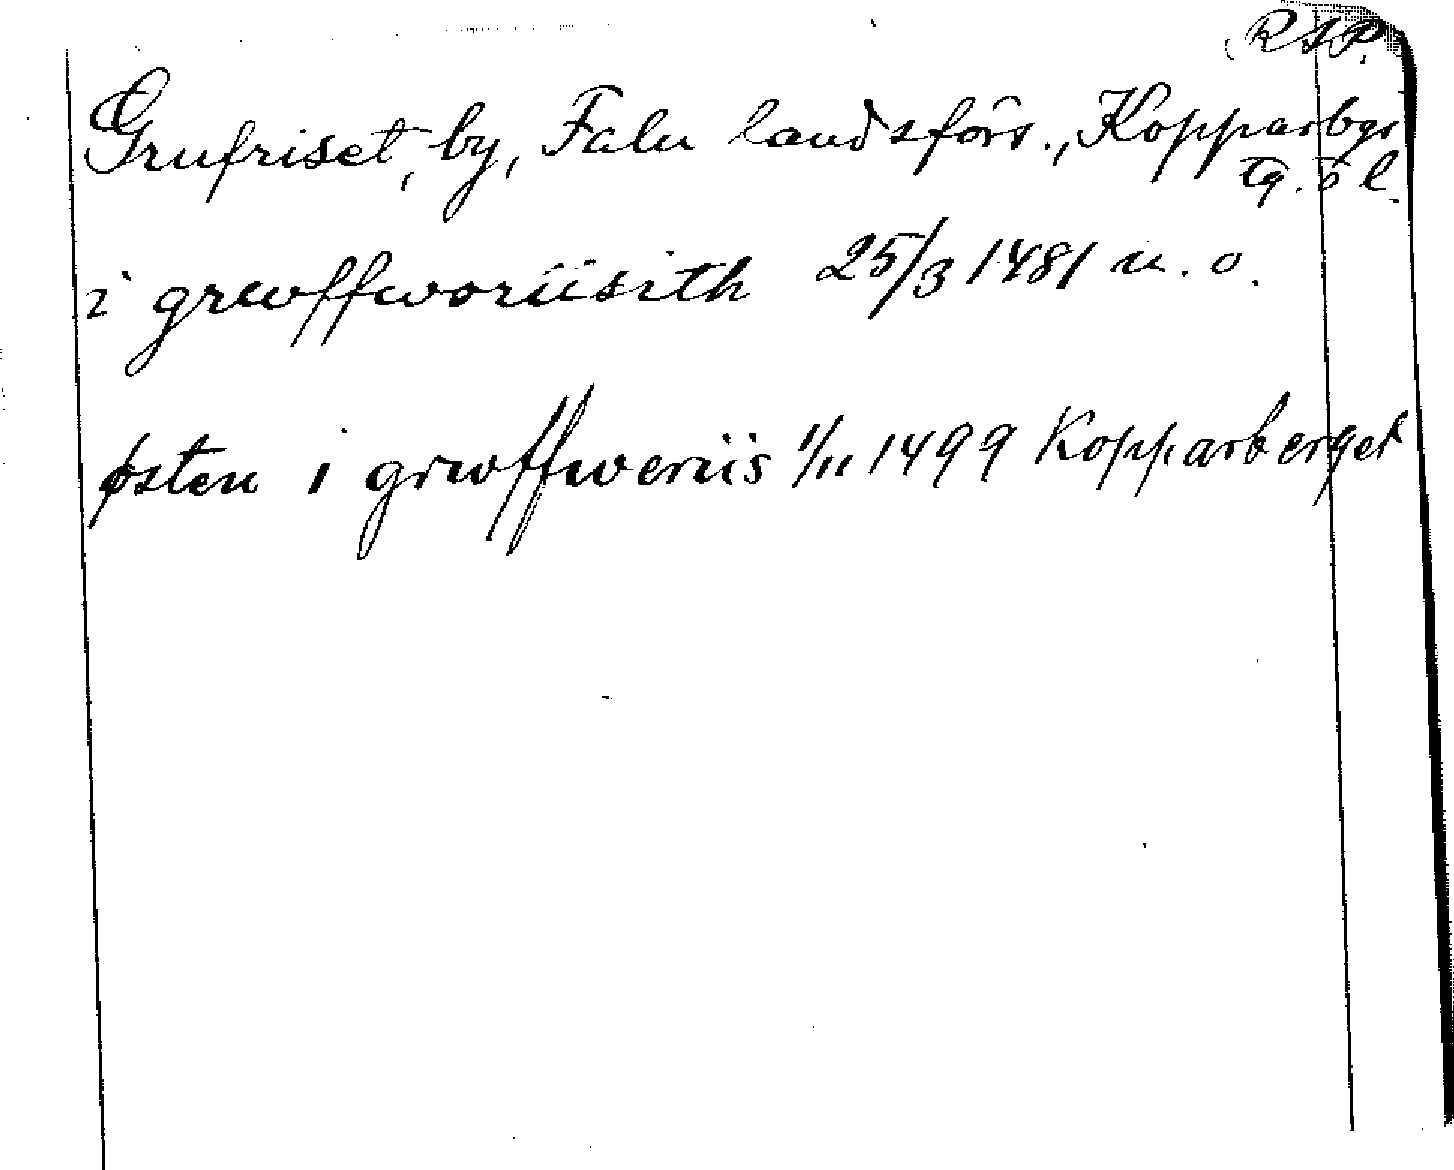 RAP.
Grufriset, by, Falu landsförs., Kopparbgs
tg. o l.
i grwffworiisith 25/3 1481 u. o.
østen i grwffweriis 1/11 1499 Kopparberget